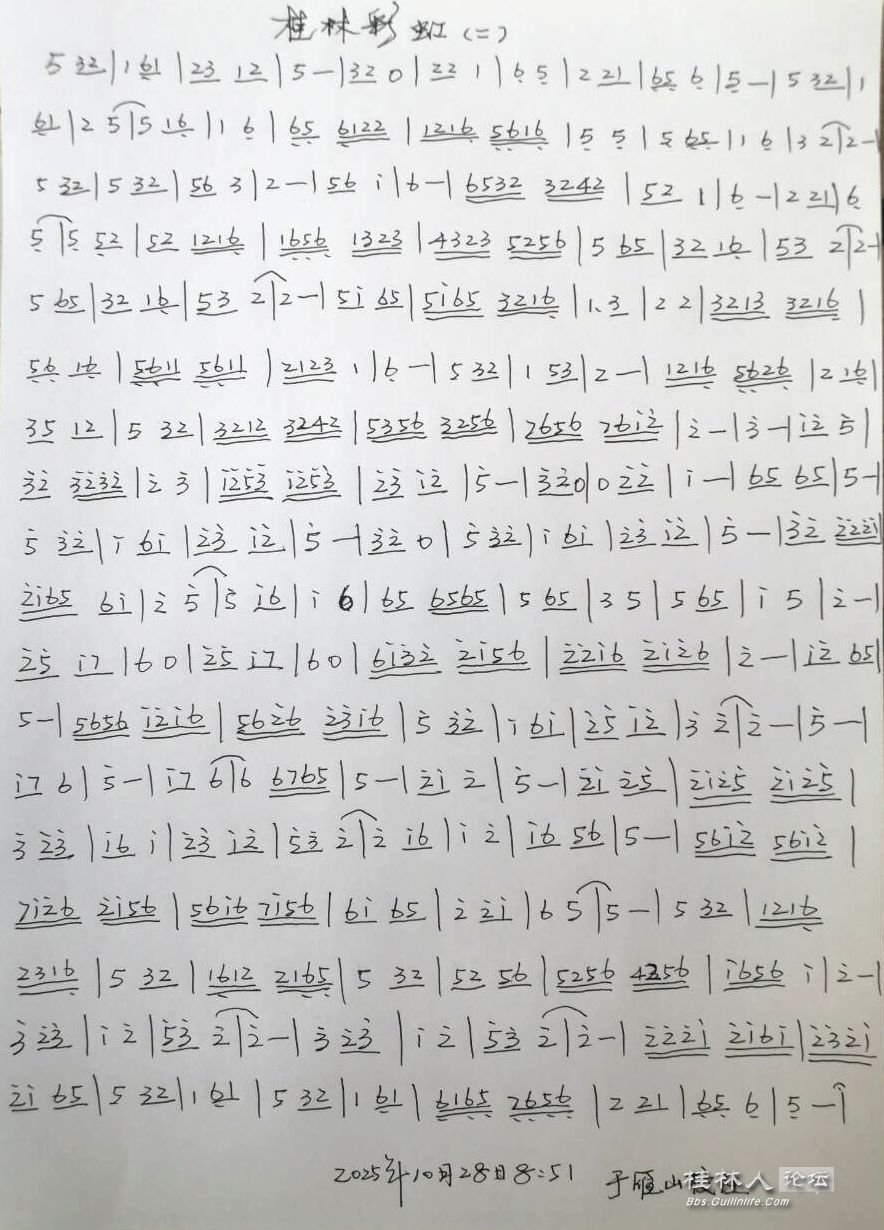 桂林彩虹(二)
5 32|1 61|23 12|5—|32 0|22 1|6 5|2 21|65 6|5—|5 32|1
61|2 5|5 16|1 6|65 6122|1216 5616|5 5|5 65|1 6|3 2|2—|
5 32|5 32|56 3|2—|56 i|6—|6532 3242|52 1|6—|2 21|6
5|5 52|52 1216|1656 1323|4323 5256|5 65|32 16|53 2|2—|
5 65|32 16|53 2|2—|5i 65|5i65 3216|1.3|2 2|3213 3216|
56 16|5611 5611|2123 1|6—|5 32|1 53|2—|1216 5626|2 16|
35 12|5 32|3212 3242|5356 3256|7656 76i2|2—|3—|i2 5|
32 3232|2 3|i253 i253|23 i2|5—|320|0 22|i—|65 65|5—|
5 32|i 6i|23 i2|5—|32 0|5 32|i 6i|23 i2|5—|32 222i|
2i65 6i|2 5|5 i6|i 6|65 6565|5 65|3 5|5 65|i 5|2—|
25 i7|60|25 i7|60|6i32 2i56|22i6 2i26|2—|i2 65|
5—|5656 i2i6|5626 23i6|5 32|i 6i|25 i2|3 2|2—|5—|
i7 6|5—|i7 6|6 6765|5—|2i 2|5—|2i 25|2i25 2i25|
3 23|i6 i|23 i2|53 2|2 i6|i 2|i6 56|5—|56i2 56i2|
7i26 2i56|56i6 7i56|6i 65|2 2i|6 5|5—|5 32|1216
2316|5 32|1612 2165|5 32|52 56|5256 4256|i656 i|2—|
3 23|i 2|53 2|2—|3 23|i 2|53 2|2—|222i 2i6i|232i
2i 65|5 32|1 61|5 32|1 61|6165 2656|2 21|65 6|5—|
2025年10月28日8:51 于雁山
桂林人论坛
Bbs.Guilinlife.Com